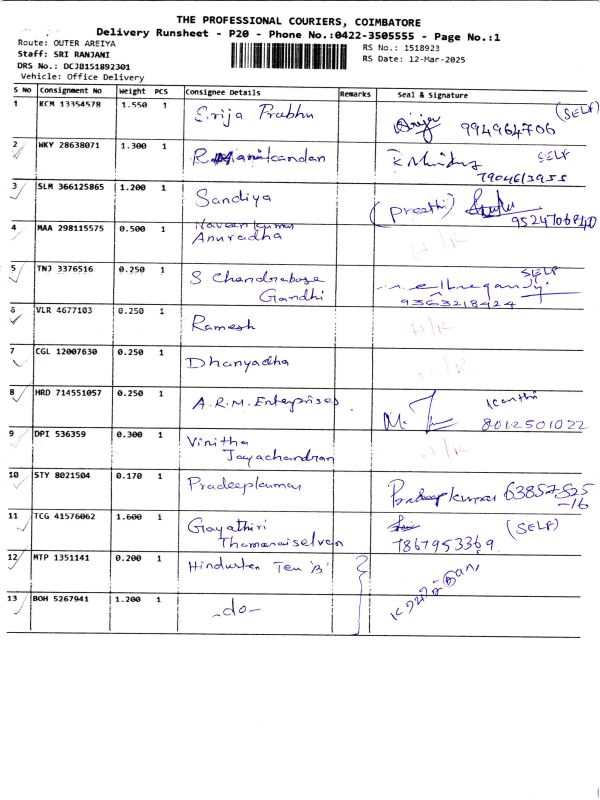 THE PROFESSIONAL COURIERS, COIMBATORE
Delivery Runsheet - P20 - Phone No.:0422-3505555 - Page No.:1
Route: OUTER AREIYA
Staff: SRI RANJANI
DRS No.: DCJB151892301
Vehicle: Office Delivery
RS No.: 1518923
RS Date: 12-Mar-2025
S No Consignment No Weight PCS Consignee Details Remarks Seal & Signature
1 KCM 13354578 1.550 1 Srija Prabhu (SELF)
994964706
2 WKY 28638071 1.300 1 SELF
7904613955
3 SLM 366125865 1.200 1 Sandiya (Preethi)
9524706840
4 MAA 298115575 0.500 1 Naveenkumar
Anuradha N/R
5 TNJ 3376516 0.250 1 S. Chandrabose SELF
Gandhi 9363218424
6 VLR 4677103 0.250 1 Ramesh N/R
7 CGL 12007630 0.250 1 Dhanyadha N/R
8 HRD 714551057 0.250 1 A.R.M. Enterprises Kanthi
8012501022
9 DPI 536359 0.300 1 Vinitha
Jayachandran N/R
10 STY 8021504 0.170 1 Pradeepkumar Pradeepkumar 63857525
-16
11 TCG 41576062 1.600 1 Gayathiri (SELF)
Thamaraiselvan 7867953369
12 MTP 1351141 0.200 1 Hindustan Tea 'B'
13 BOH 5267941 1.200 1 -do-